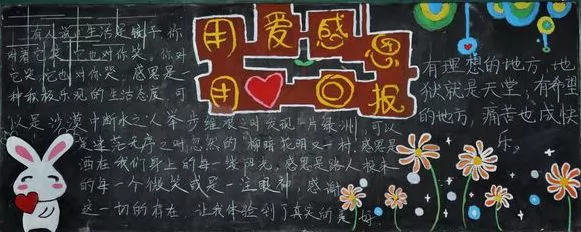 用爱感恩
用心回报
有人说，生活是镜子，你
对着它笑，它也对你笑。你对
它哭，它也对你哭。感恩是一
种积极乐观的生活态度，可
以是沙漠中断水之人举步维艰之时发现一片绿洲，可以
是迷茫无序之时忽然的"柳暗花明又一村，感恩是
洒在我们身上的每一缕阳光。感恩是路人投来
的每一个微笑或是一注眼神，感谢
这一切的存在，让我体验到了真实的美好。
有理想的地方，地
狱就是天堂；有希望
的地方，痛苦也成快
乐。